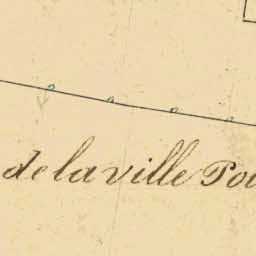 delaville Pou